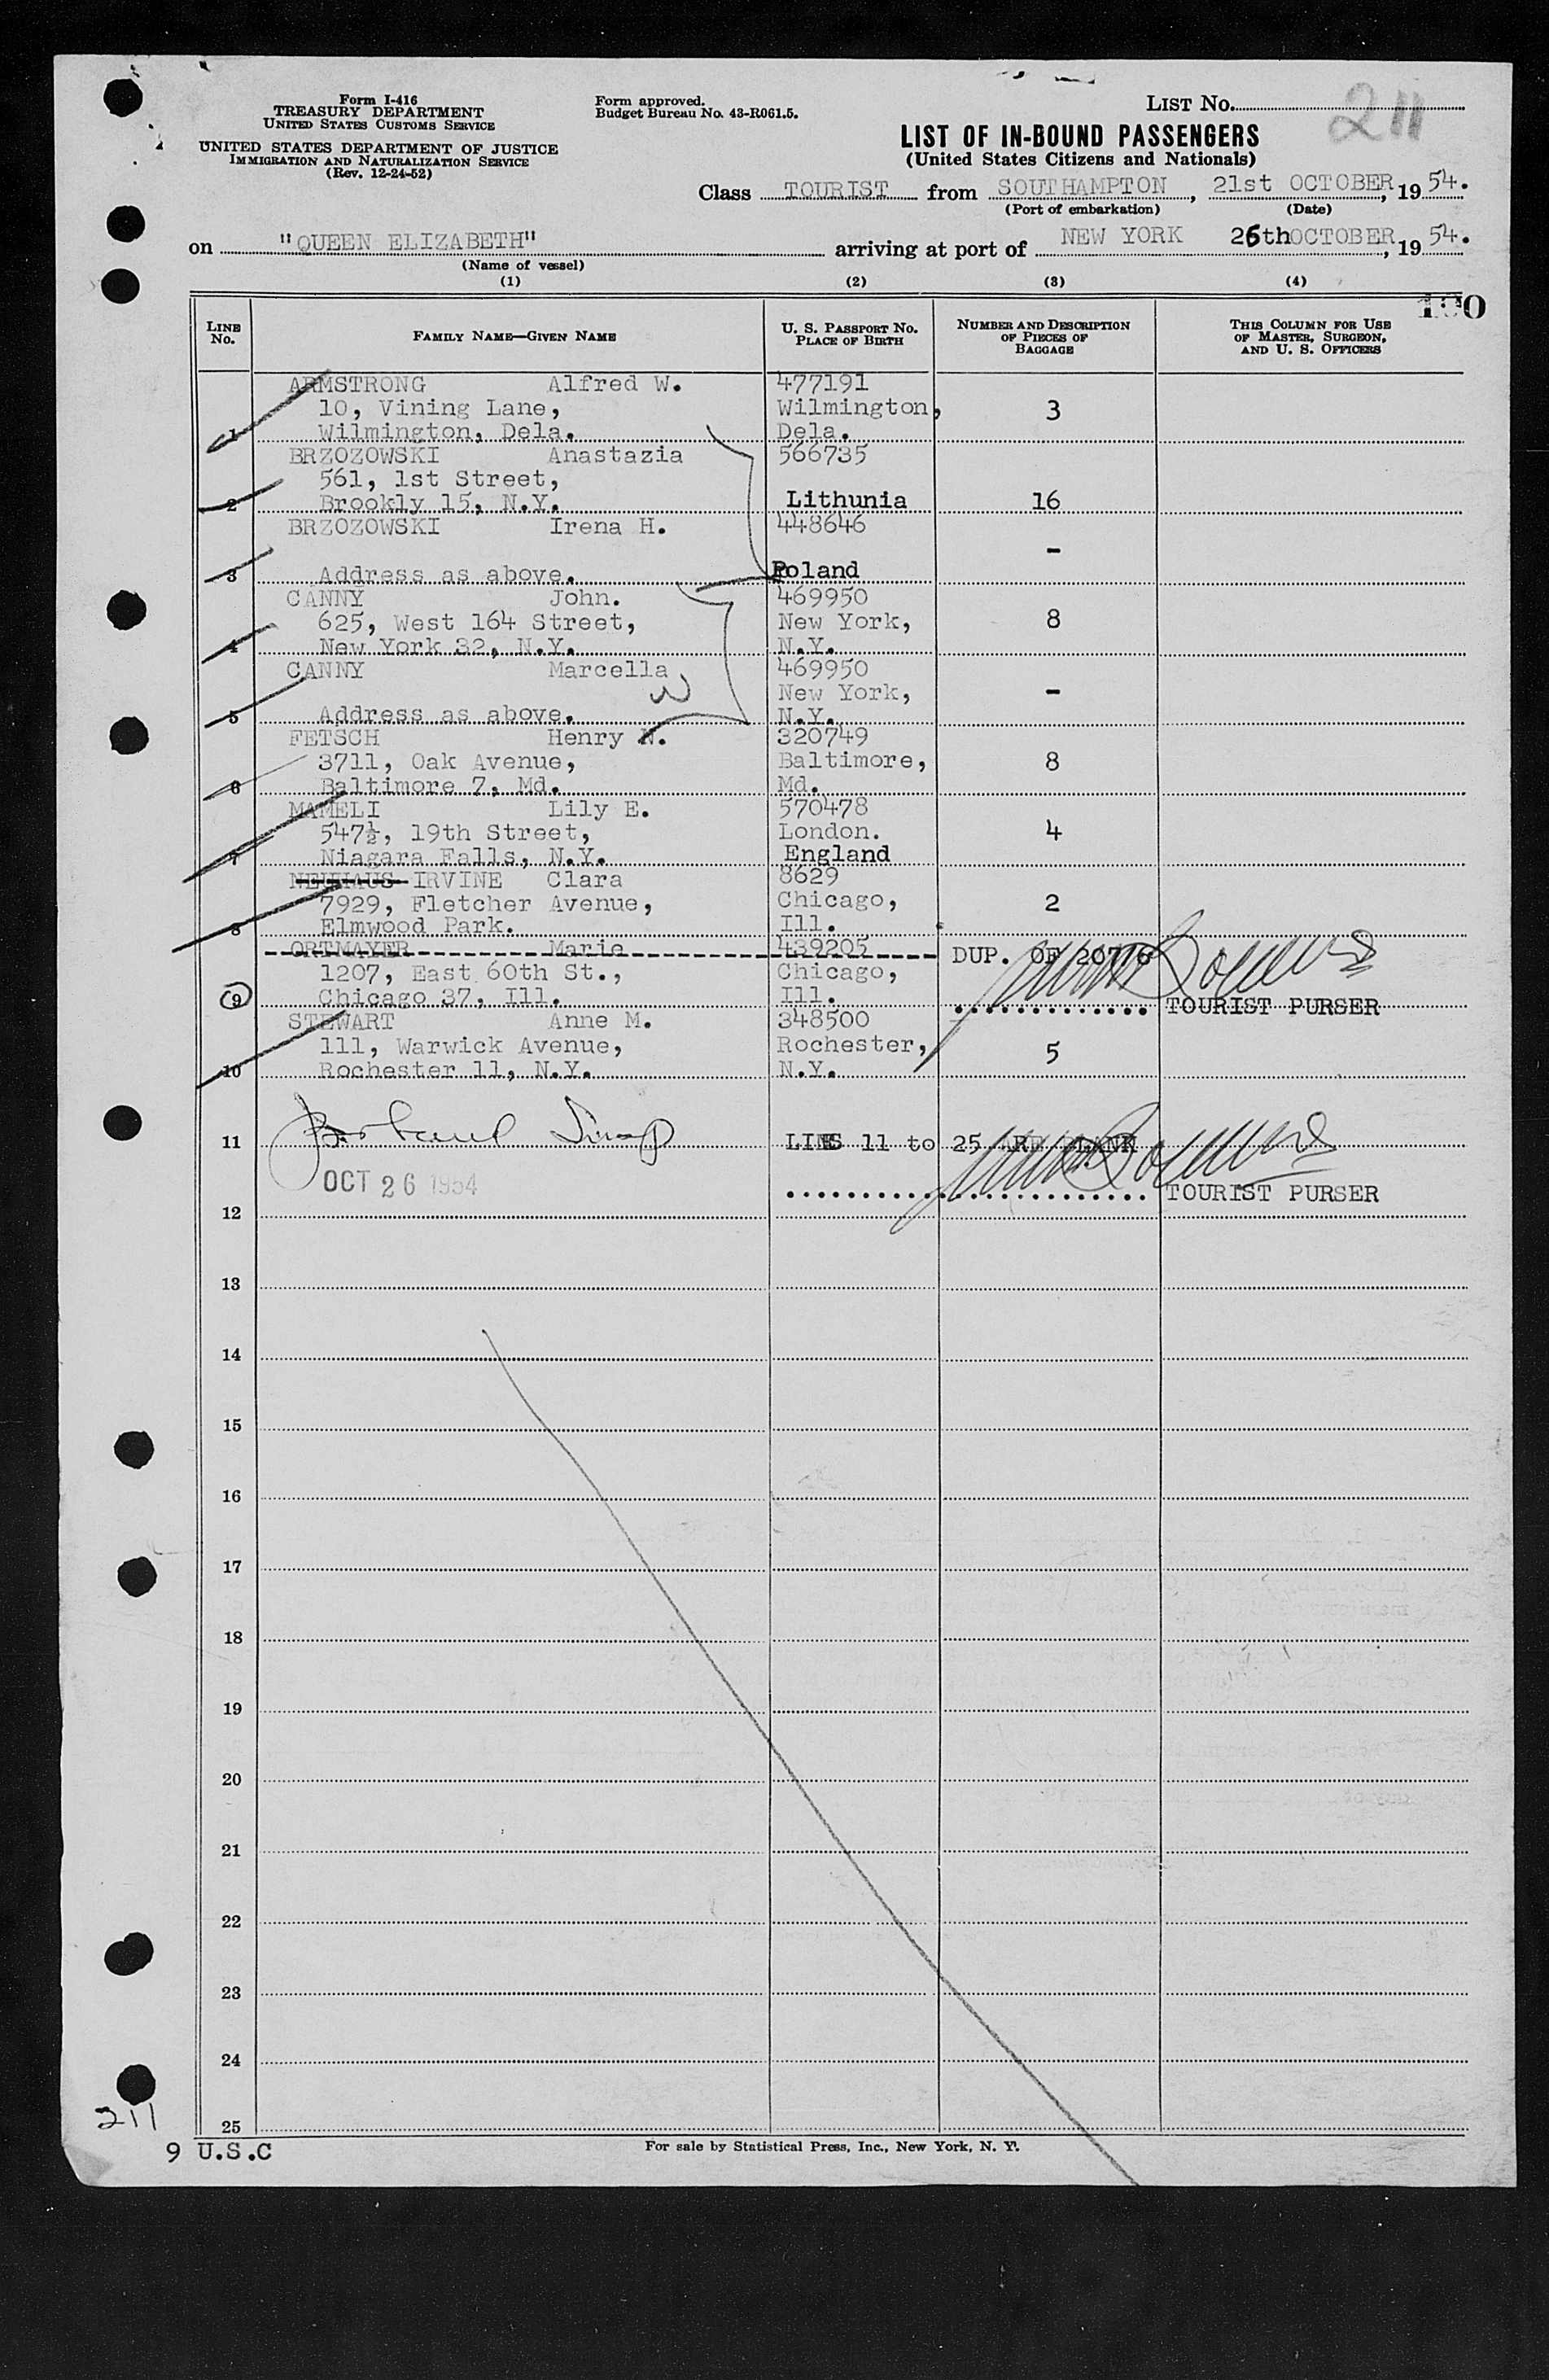 Form I-416
TREASURY DEPARTMENT
UNITED STATES CUSTOMS SERVICE
UNITED STATES DEPARTMENT OF JUSTICE
IMMIGRATION AND NATURALIZATION SERVICE
(Rev. 12-24-52)
Form approved.
Budget Bureau No. 43-R061.5.
LIST NO. 211
LIST OF IN-BOUND PASSENGERS
(United States Citizens and Nationals)
Class TOURIST from SOUTHAMPTON, 21st OCTOBER, 1954.
(Port of embarkation) (Date)
on "QUEEN ELIZABETH" arriving at port of NEW YORK 26th OCTOBER, 1954.
(Name of vessel)
(1) (2) (3) (4)
LINE No. FAMILY NAME—GIVEN NAME U. S. PASSPORT NO. PLACE OF BIRTH NUMBER AND DESCRIPTION OF PIECES OF BAGGAGE THIS COLUMN FOR USE OF MASTER, SURGEON, AND U. S. OFFICERS
ARMSTRONG Alfred W. 477191
10, Vining Lane, Wilmington, 3
1 Wilmington, Dela. Dela.
BRZOZOWSKI Anastazia 566735
561, 1st Street,
2 Brookly 15, N.Y. Lithunia 16
BRZOZOWSKI Irena H. 448646
-
3 Address as above. Poland
CANNY John. 469950
625, West 164 Street, New York, 8
4 New York 32, N.Y. N.Y.
CANNY Marcella 469950
New York, -
5 Address as above. N.Y.
W
FETSCH Henry N. 320749
3711, Oak Avenue, Baltimore, 8
6 Baltimore 7, Md. Md.
MAMELI Lily E. 570478
547½, 19th Street, London. 4
7 Niagara Falls, N.Y. England
NEUHAUS IRVINE Clara 8629
7929, Fletcher Avenue, Chicago, 2
8 Elmwood Park. Ill.
ORTMAYER Marie 439205 DUP. OF
1207, East 60th St., Chicago,
9 Chicago 37, Ill. Ill. TOURIST PURSER
STEWART Anne M. 348500
111, Warwick Avenue, Rochester, 5
10 Rochester 11, N.Y. N.Y.
11 LINES 11 to 25 ARE BLANK
OCT 26 1954 TOURIST PURSER
12
13
14
15
16
17
18
19
20
21
22
23
24
25
211
9 U.S.C
For sale by Statistical Press, Inc., New York, N. Y.